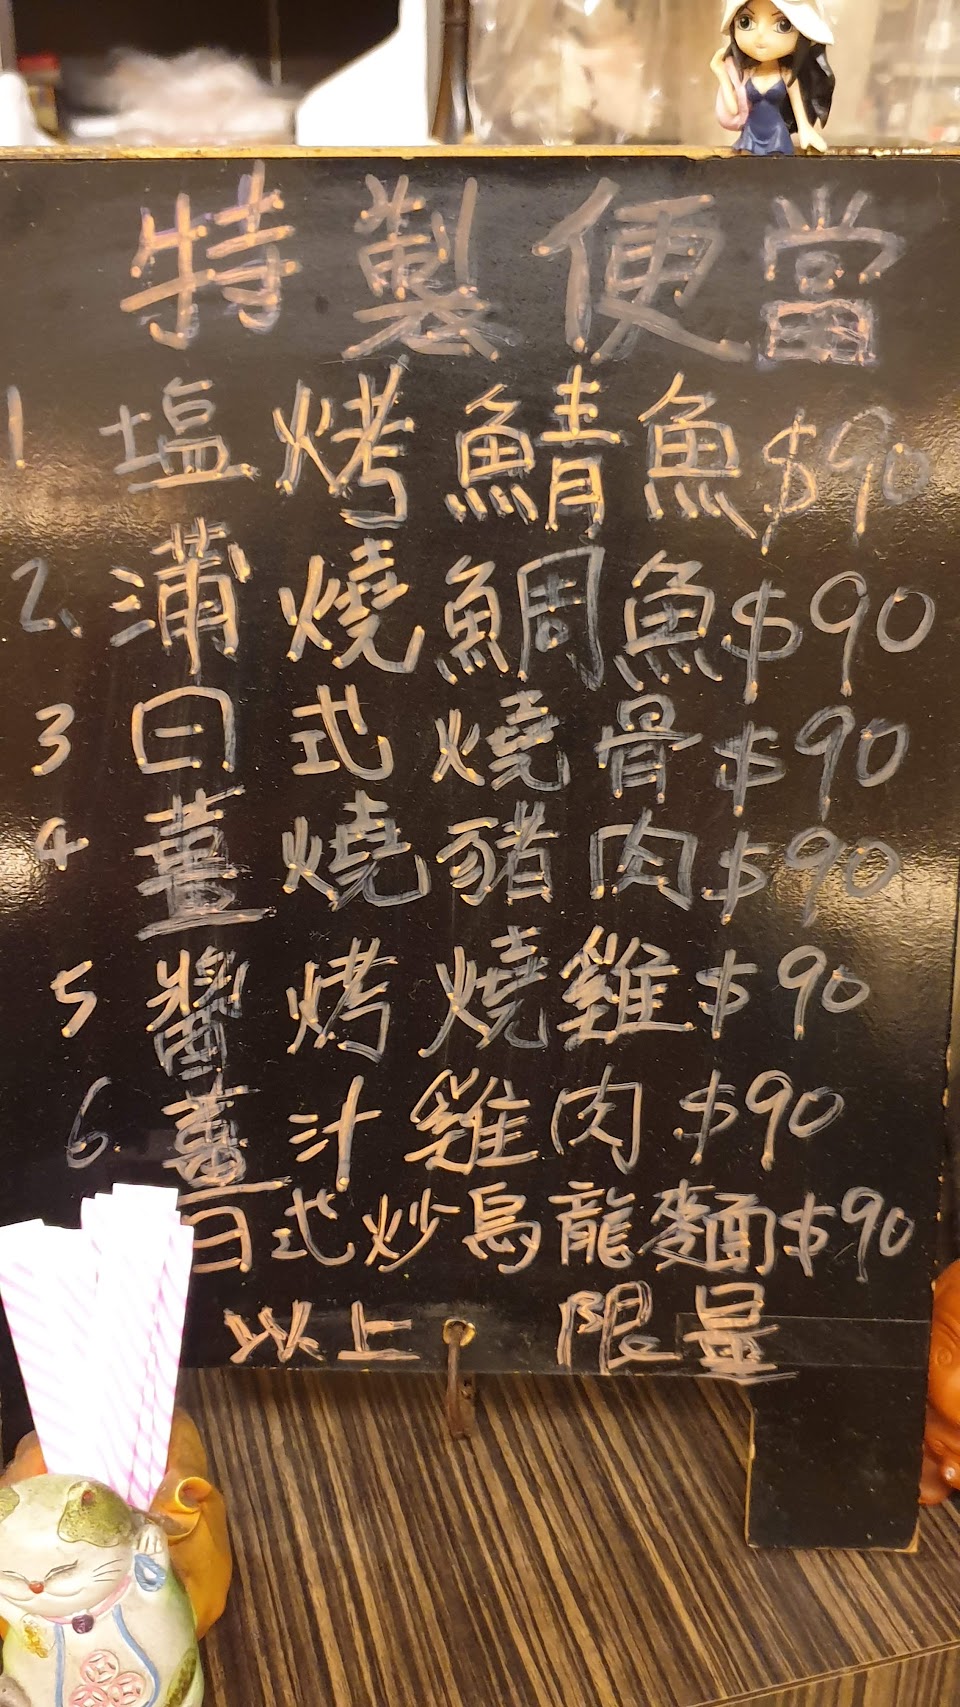 特製便當
1 塩烤鯖魚$90
2、蒲燒鯛魚$90
3 日式燒骨$90
4 薑燒豬肉$90
5 醬烤燒雞$90
6. 薑汁雞肉$90
日式炒烏龍麵$90
以上 限量